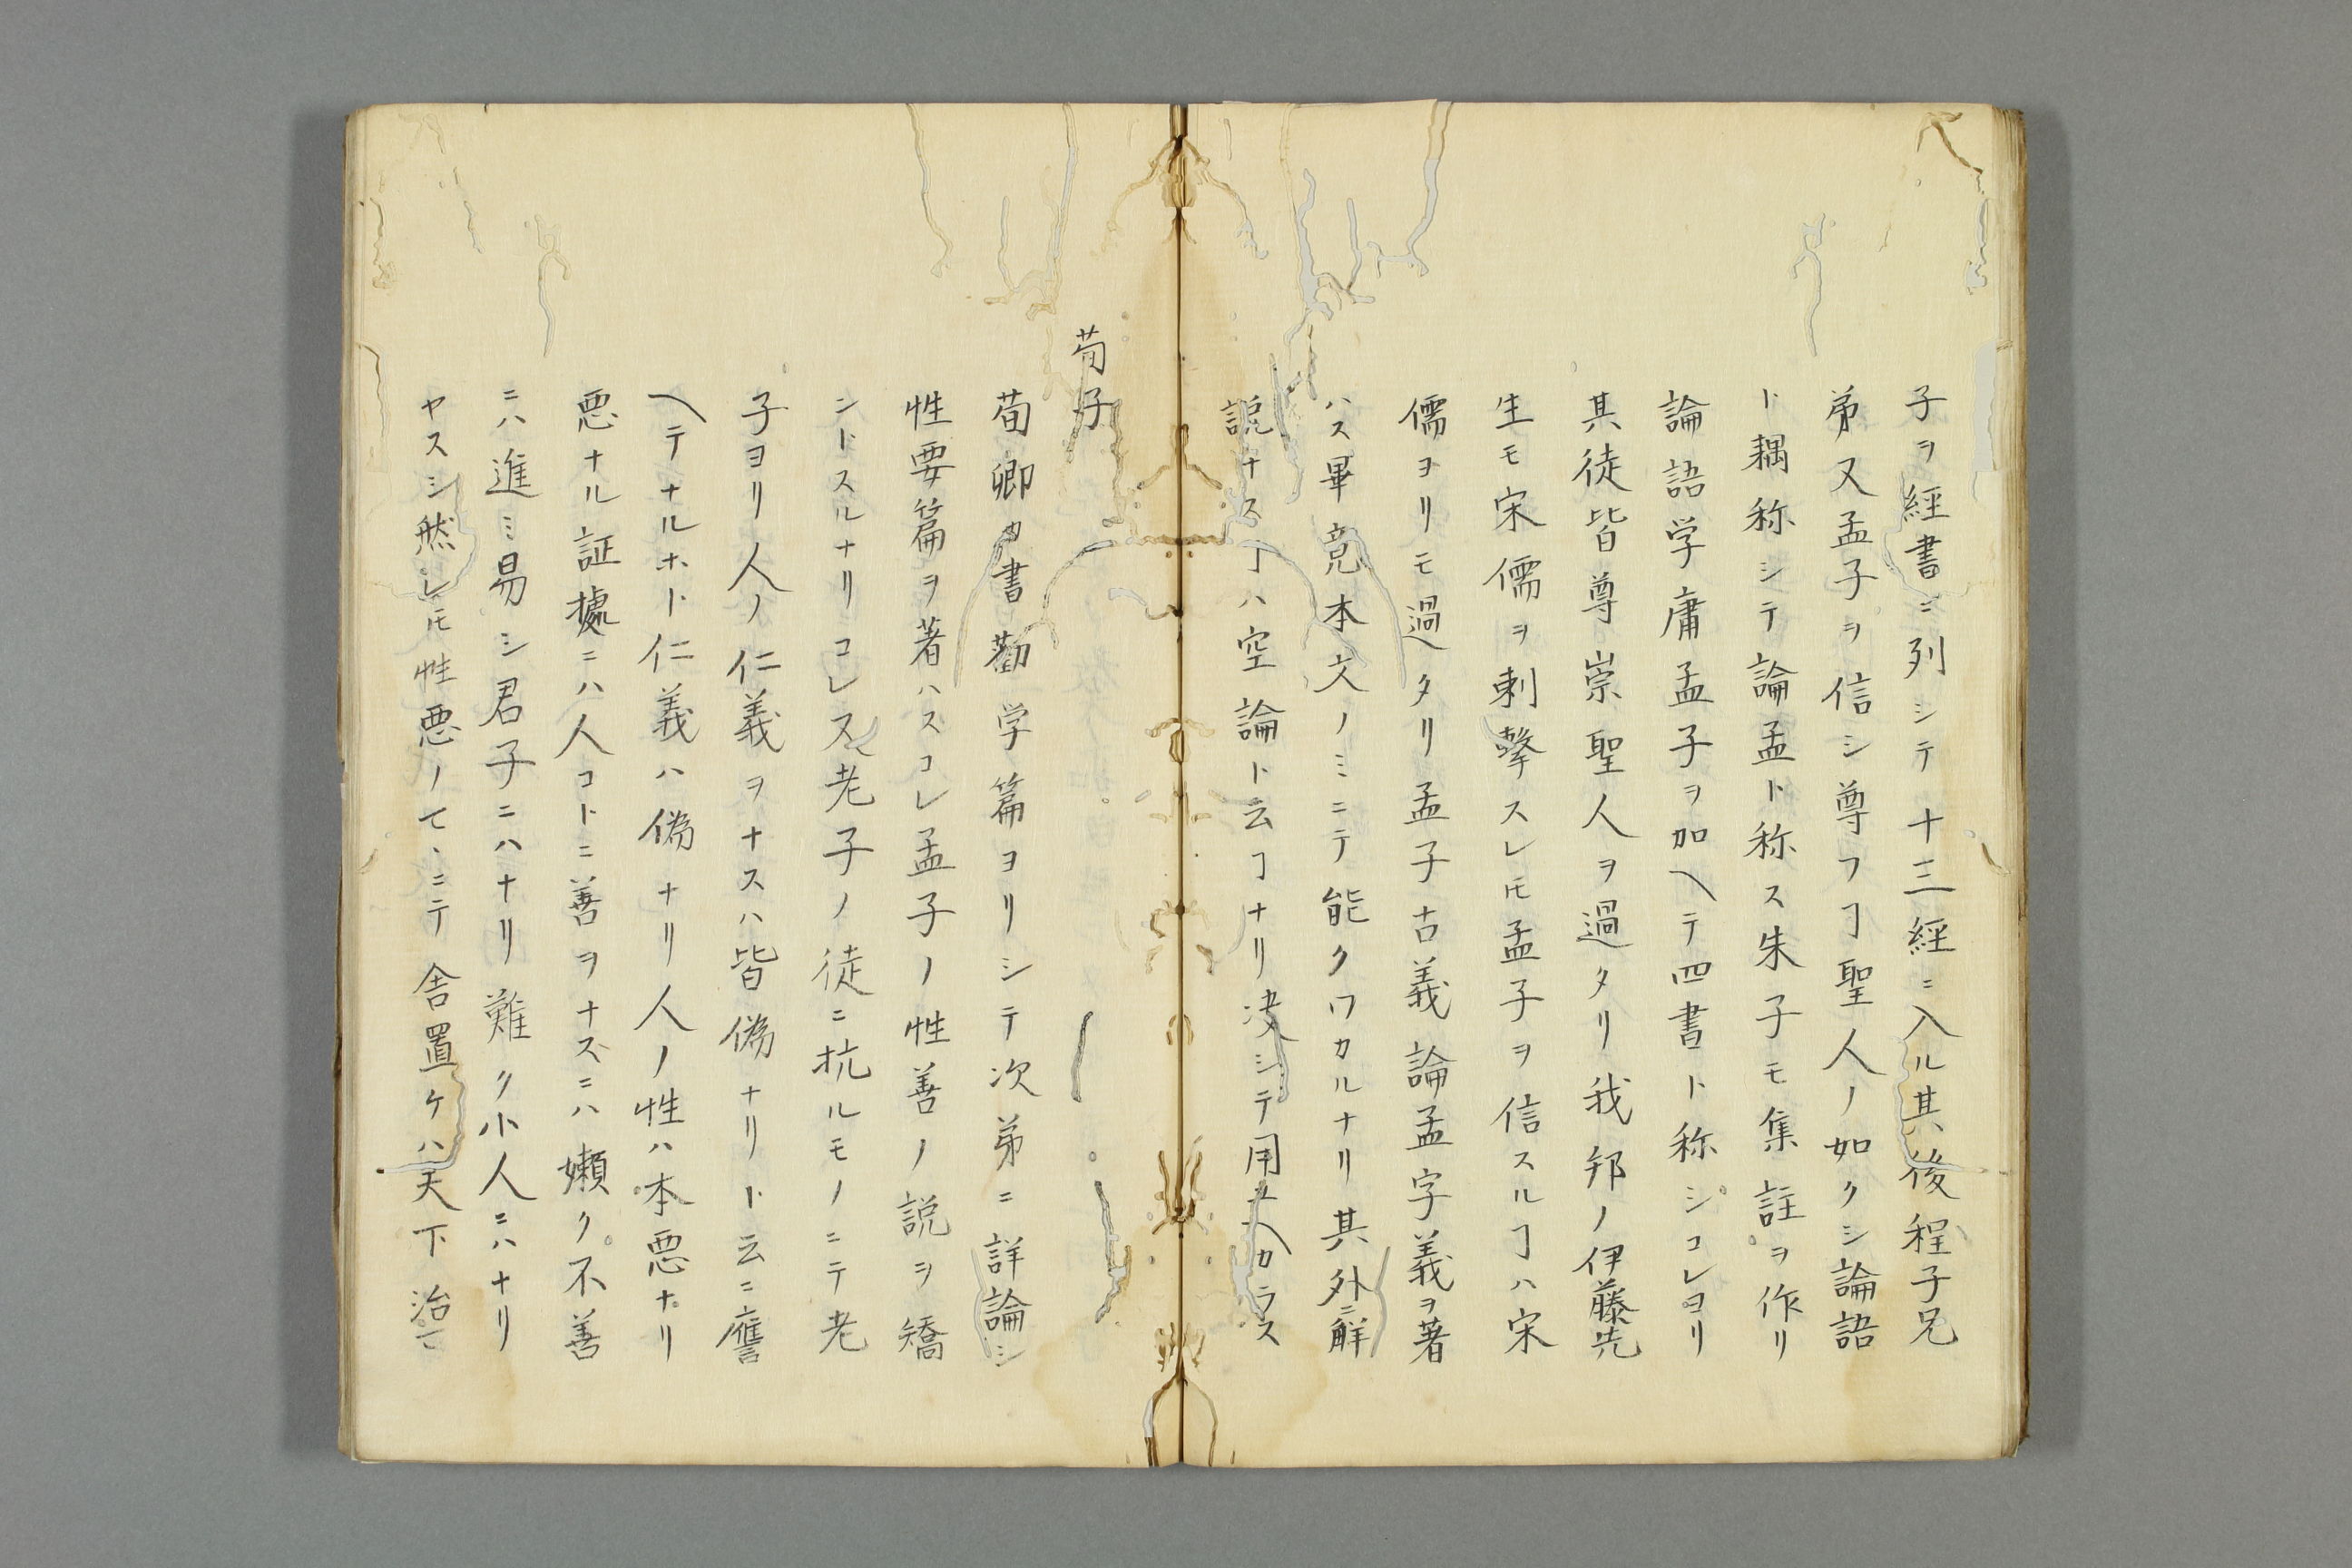 子ヲ經書ニ列シテ十三經ニ入ル其後程子兄
弟又孟子ヲ信シ尊フヿ聖人ノ如クシ論語
ト耦称シテ論孟ト称ス朱子モ集註ヲ作リ
論語学庸孟子ヲ加ヘテ四書ト称シコレヨリ
其徒皆尊崇聖人ヲ過タリ我邦ノ伊藤先
生モ宋儒ヲ刺擊スレ𪜈孟子ヲ信スルヿハ宋
儒ヨリモ過タリ孟子古義論孟字義ヲ著
ハス畢竟本文ノミニテ能クワカルナリ其外ニ解
説ナスヿハ空論ト云ヿナリ决シテ用ユヘカラス
荀子
荀卿カ書勸学篇ヨリシテ次第ニ詳論シ
性要篇ヲ著ハスコレ孟子ノ性善ノ説ヲ矯
シトスルナリコレ又老子ノ徒ニ抗ルモノニテ老
子ヨリ人ノ仁義ヲナスハ皆偽ナリト云ニ譍
ヘテナルホト仁義ハ偽ナリ人ノ性ハ本悪ナリ
悪ナル証據ニハ人コトニ善ヲナスニハ嬾ク不善
ニハ進ミ易シ君子ニハナリ難ク小人ニハナリ
ヤスシ然レ𪜈性悪ノ
ニテ舎置ケハ天下治